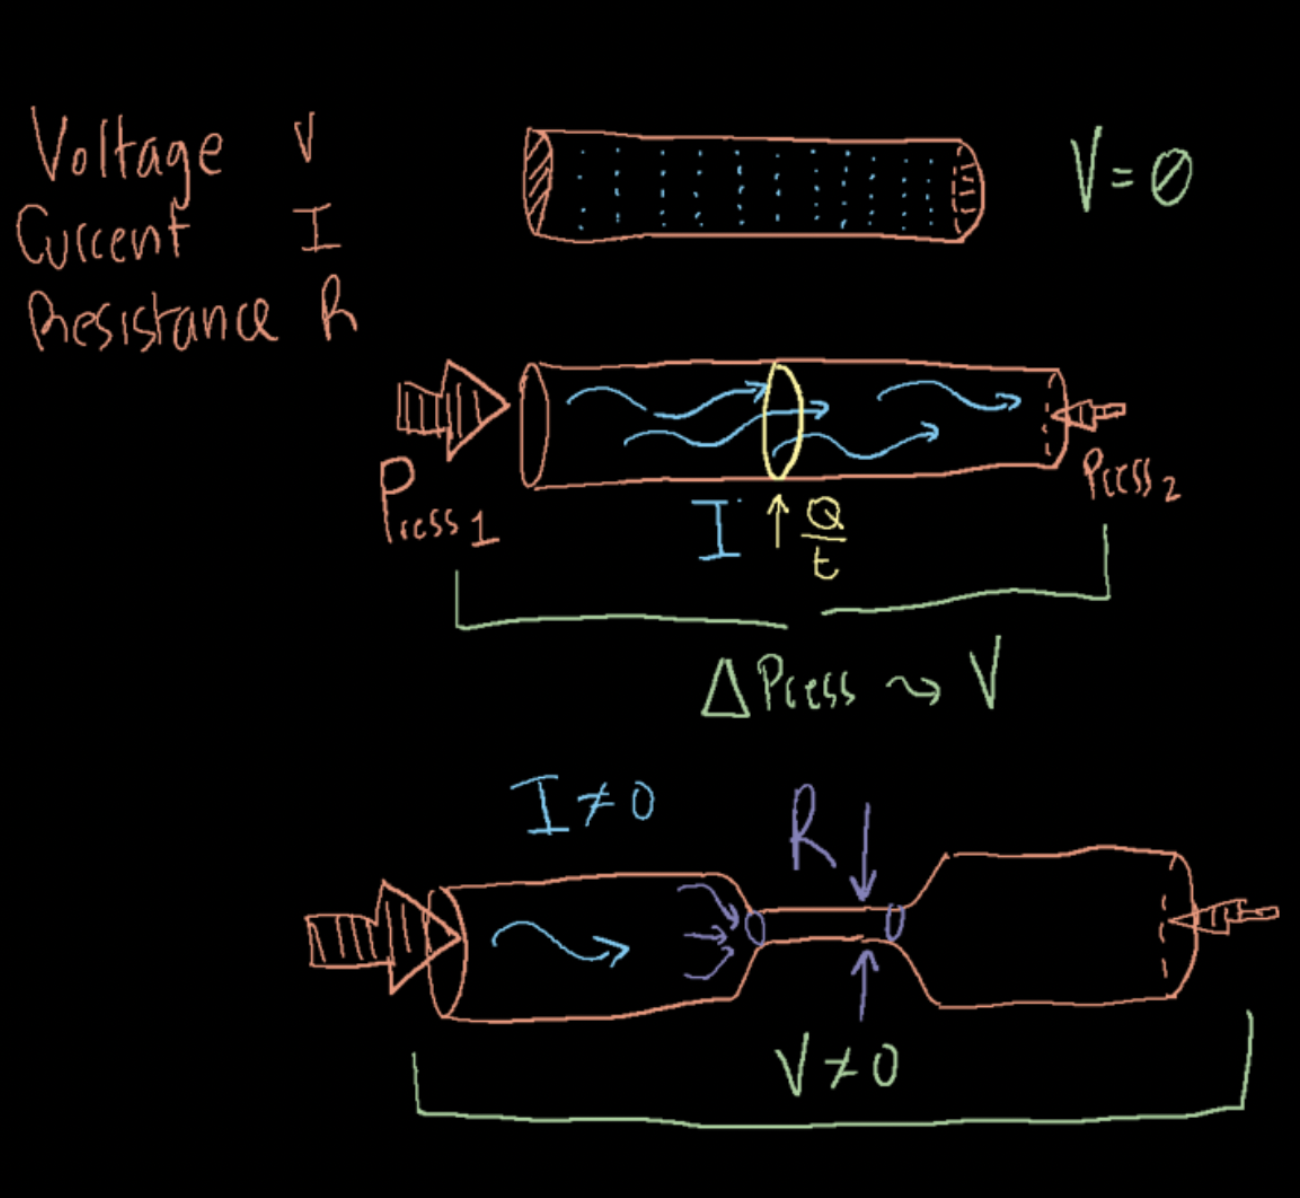 Voltage V
Current I
Resistance R
V = 0
Press 1
I ↑ Q/t
Press 2
Δ Press ⤳ V
I ≠ 0
R
V ≠ 0